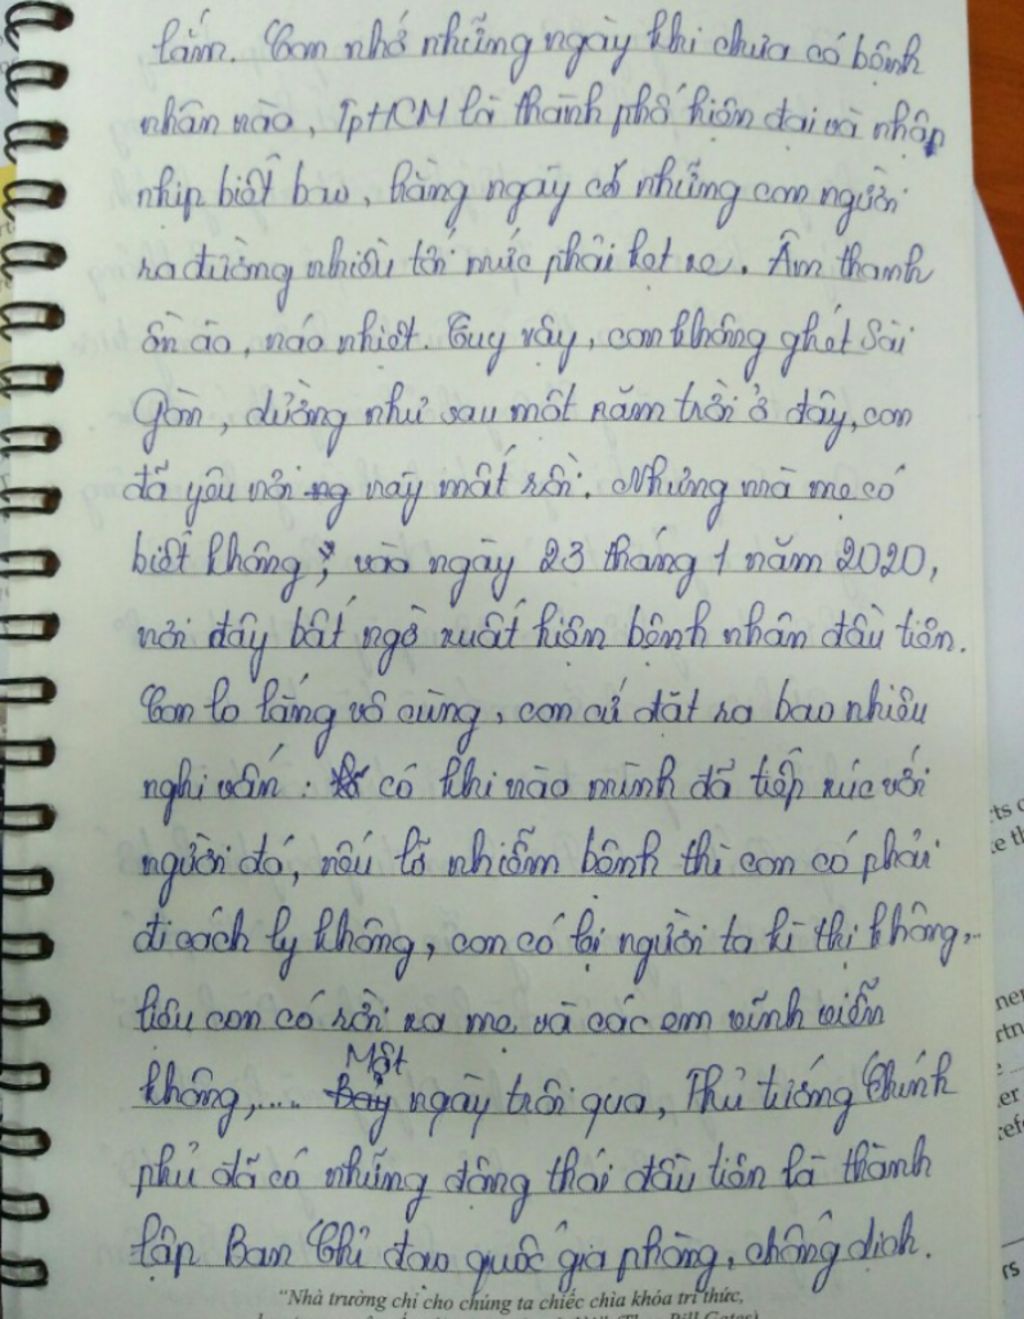 lắm. Con nhớ những ngày khi chưa có bệnh
nhân nào, TpHCM là thành phố hiện đại và nhộp
nhịp biết bao, hàng ngày có những con người
ra đường nhiều tới mức phải kẹt xe. Âm thanh
ồn ào, náo nhiệt. Tuy vậy, con không ghét Sài
Gòn, dường như sau một năm trời ở đây, con
đã yêu nơi này mất rồi. Nhưng mà mẹ có
biết không, vào ngày 23 tháng 1 năm 2020,
nơi đây bất ngờ xuất hiện bệnh nhân đầu tiên.
Con lo lắng vô cùng, con cứ đặt ra bao nhiêu
nghi vấn: có khi nào mình đã tiếp xúc với
người đó, nếu lỡ nhiễm bệnh thì con có phải
đi cách ly không, con có bị người ta kì thị không,..
liệu con có rời xa mẹ và các em vĩnh viễn
không,.... Một ngày trôi qua, Thủ tướng Chính
phủ đã có những động thái đầu tiên là thành
lập Ban Chỉ đạo quốc gia phòng, chống dịch.
"Nhà trường chỉ cho chúng ta chiếc chìa khóa tri thức,